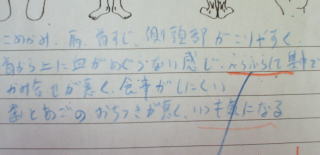 こめかみ、肩、首すじ、側頭部がこりやすく
首から上に血がめぐらない感じ。ふらふらして集中で
かみ合せが悪く、食事がしにくい
歯とあごのおちつきが悪く、いつも気になる